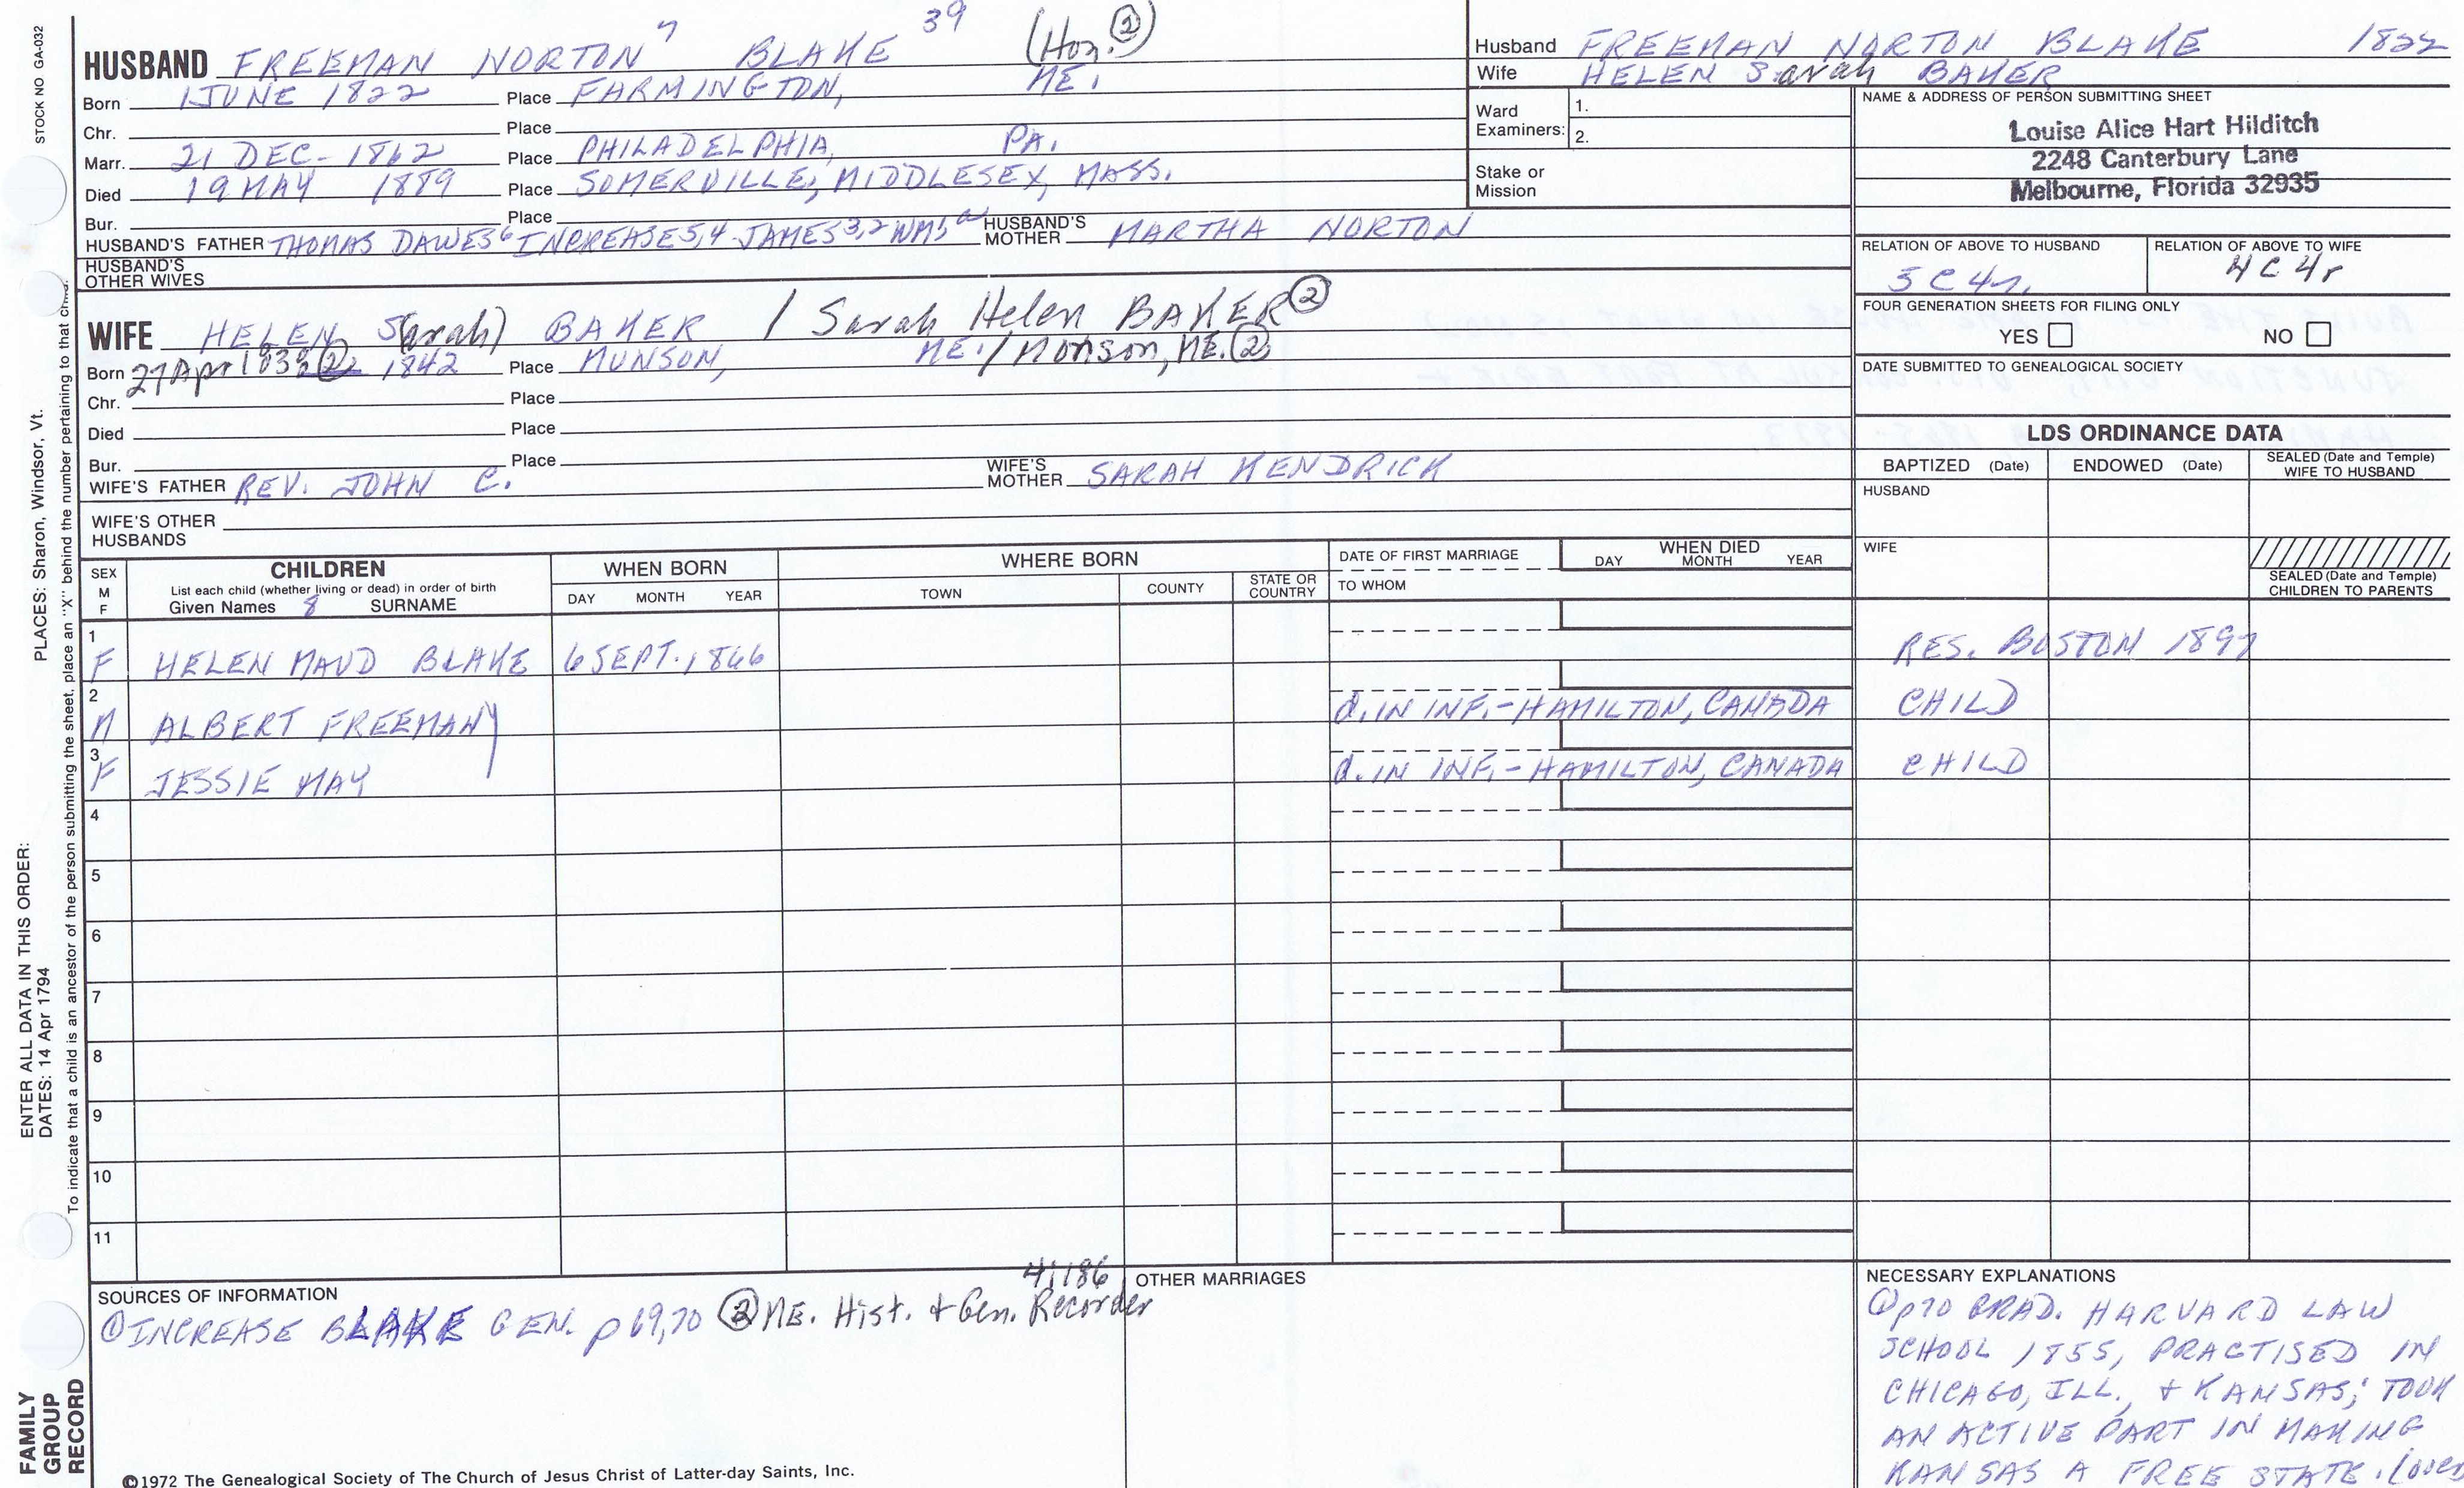 STOCK NO GA-032
HUSBAND FREEMAN NORTON 7 BLAKE 39 (Hon. ②)
Born 1 JUNE 1822 Place FARMINGTON, ME.
Chr. Place
Marr. 21 DEC- 1862 Place PHILADELPHIA, PA.
Died 19 MAY 1889 Place SOMERVILLE, MIDDLESEX, MASS.
Bur. Place
HUSBAND'S FATHER THOMAS DAWES6 INCREASE5,4 JAMES3,2 WM1 HUSBAND'S MOTHER MARTHA NORTON
HUSBAND'S OTHER WIVES
Husband FREEMAN NORTON BLAKE 1822
Wife HELEN Sarah BAKER
Ward Examiners: 1.
2.
Stake or Mission
NAME & ADDRESS OF PERSON SUBMITTING SHEET
Louise Alice Hart Hilditch
2248 Canterbury Lane
Melbourne, Florida 32935
RELATION OF ABOVE TO HUSBAND RELATION OF ABOVE TO WIFE
5C4r. 4C4r
FOUR GENERATION SHEETS FOR FILING ONLY
YES NO
DATE SUBMITTED TO GENEALOGICAL SOCIETY
WIFE HELEN S(arah) BAKER / Sarah Helen BAKER ②
Born 27 Apr 1838 ② 1842 Place MUNSON, ME. / Monson, ME. ②
Chr. Place
Died Place
Bur. Place
WIFE'S FATHER REV. JOHN C. WIFE'S MOTHER SARAH KENDRICK
WIFE'S OTHER HUSBANDS
LDS ORDINANCE DATA
BAPTIZED (Date) ENDOWED (Date) SEALED (Date and Temple) WIFE TO HUSBAND
HUSBAND
WIFE
SEALED (Date and Temple) CHILDREN TO PARENTS
SEX M F CHILDREN
List each child (whether living or dead) in order of birth
Given Names 8 SURNAME
WHEN BORN
DAY MONTH YEAR
WHERE BORN
TOWN COUNTY STATE OR COUNTRY
DATE OF FIRST MARRIAGE
TO WHOM
WHEN DIED
DAY MONTH YEAR
1 F HELEN MAUD BLAKE 6 SEPT. 1866 RES. BOSTON 1897
2 M ALBERT FREEMAN d. IN INF.-HAMILTON, CANADA CHILD
3 F JESSIE MAY d. IN INF.-HAMILTON, CANADA CHILD
4
5
6
7
8
9
10
11
SOURCES OF INFORMATION
① INCREASE BLAKE GEN. p 69,70 ② ME. Hist. + Gen. Recorder 4:186
OTHER MARRIAGES
NECESSARY EXPLANATIONS
① p70 GRAD. HARVARD LAW
SCHOOL 1855, PRACTISED IN
CHICAGO, ILL., + KANSAS; TOOK
AN ACTIVE PART IN MAKING
KANSAS A FREE STATE. (over
©1972 The Genealogical Society of The Church of Jesus Christ of Latter-day Saints, Inc.
FAMILY GROUP RECORD
ENTER ALL DATA IN THIS ORDER:
DATES: 14 Apr 1794
PLACES: Sharon, Windsor, Vt.
To indicate that a child is an ancestor of the person submitting the sheet, place an "X" behind the number pertaining to that child.